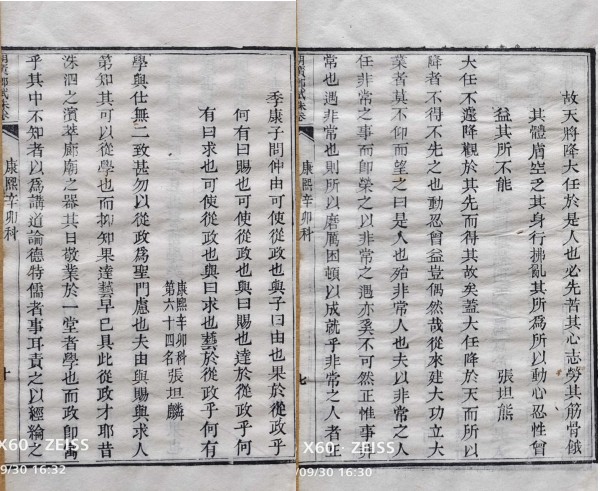 故天將降大任於是人也必先苦其心志勞其筋骨餓
其體膚空乏其身行拂亂其所爲所以動心忍性曾
益其所不能
張坦熊
大任不遽降觀於其先而得其故矣蓋大任降於天而所以
降者不得不先之也動忍曾益豈偶然哉從來建大功立大
業者莫不仰而望之曰是人也殆非常人也夫以非常之人
任非常之事而卽榮之以非常之遇亦奚不可然正惟事非
常也遇非常也則所以磨厲困頓以成就乎非常之人者正
康熙辛卯科
七
X60 · ZEISS
/09/30 16:30
季康子問仲由可使從政也與子曰由也果於從政乎
何有曰賜也可使從政也與曰賜也達於從政乎何
有曰求也可使從政也與曰求也藝於從政乎何有
康熙辛卯科
第六十四名
張坦麟
學與仕無二致甚勿以從政爲聖門慮也夫由與賜與求人
第知其可以從學也而抑知果達藝早已具此從政才耶昔
洙泗之濱萃廊廟之器其日敬業於一堂者學也而政卽寓
乎其中不知者以爲講道論德特儒者事耳責之以經綸之
康熙辛卯科
十
X60 · ZEISS
/09/30 16:32